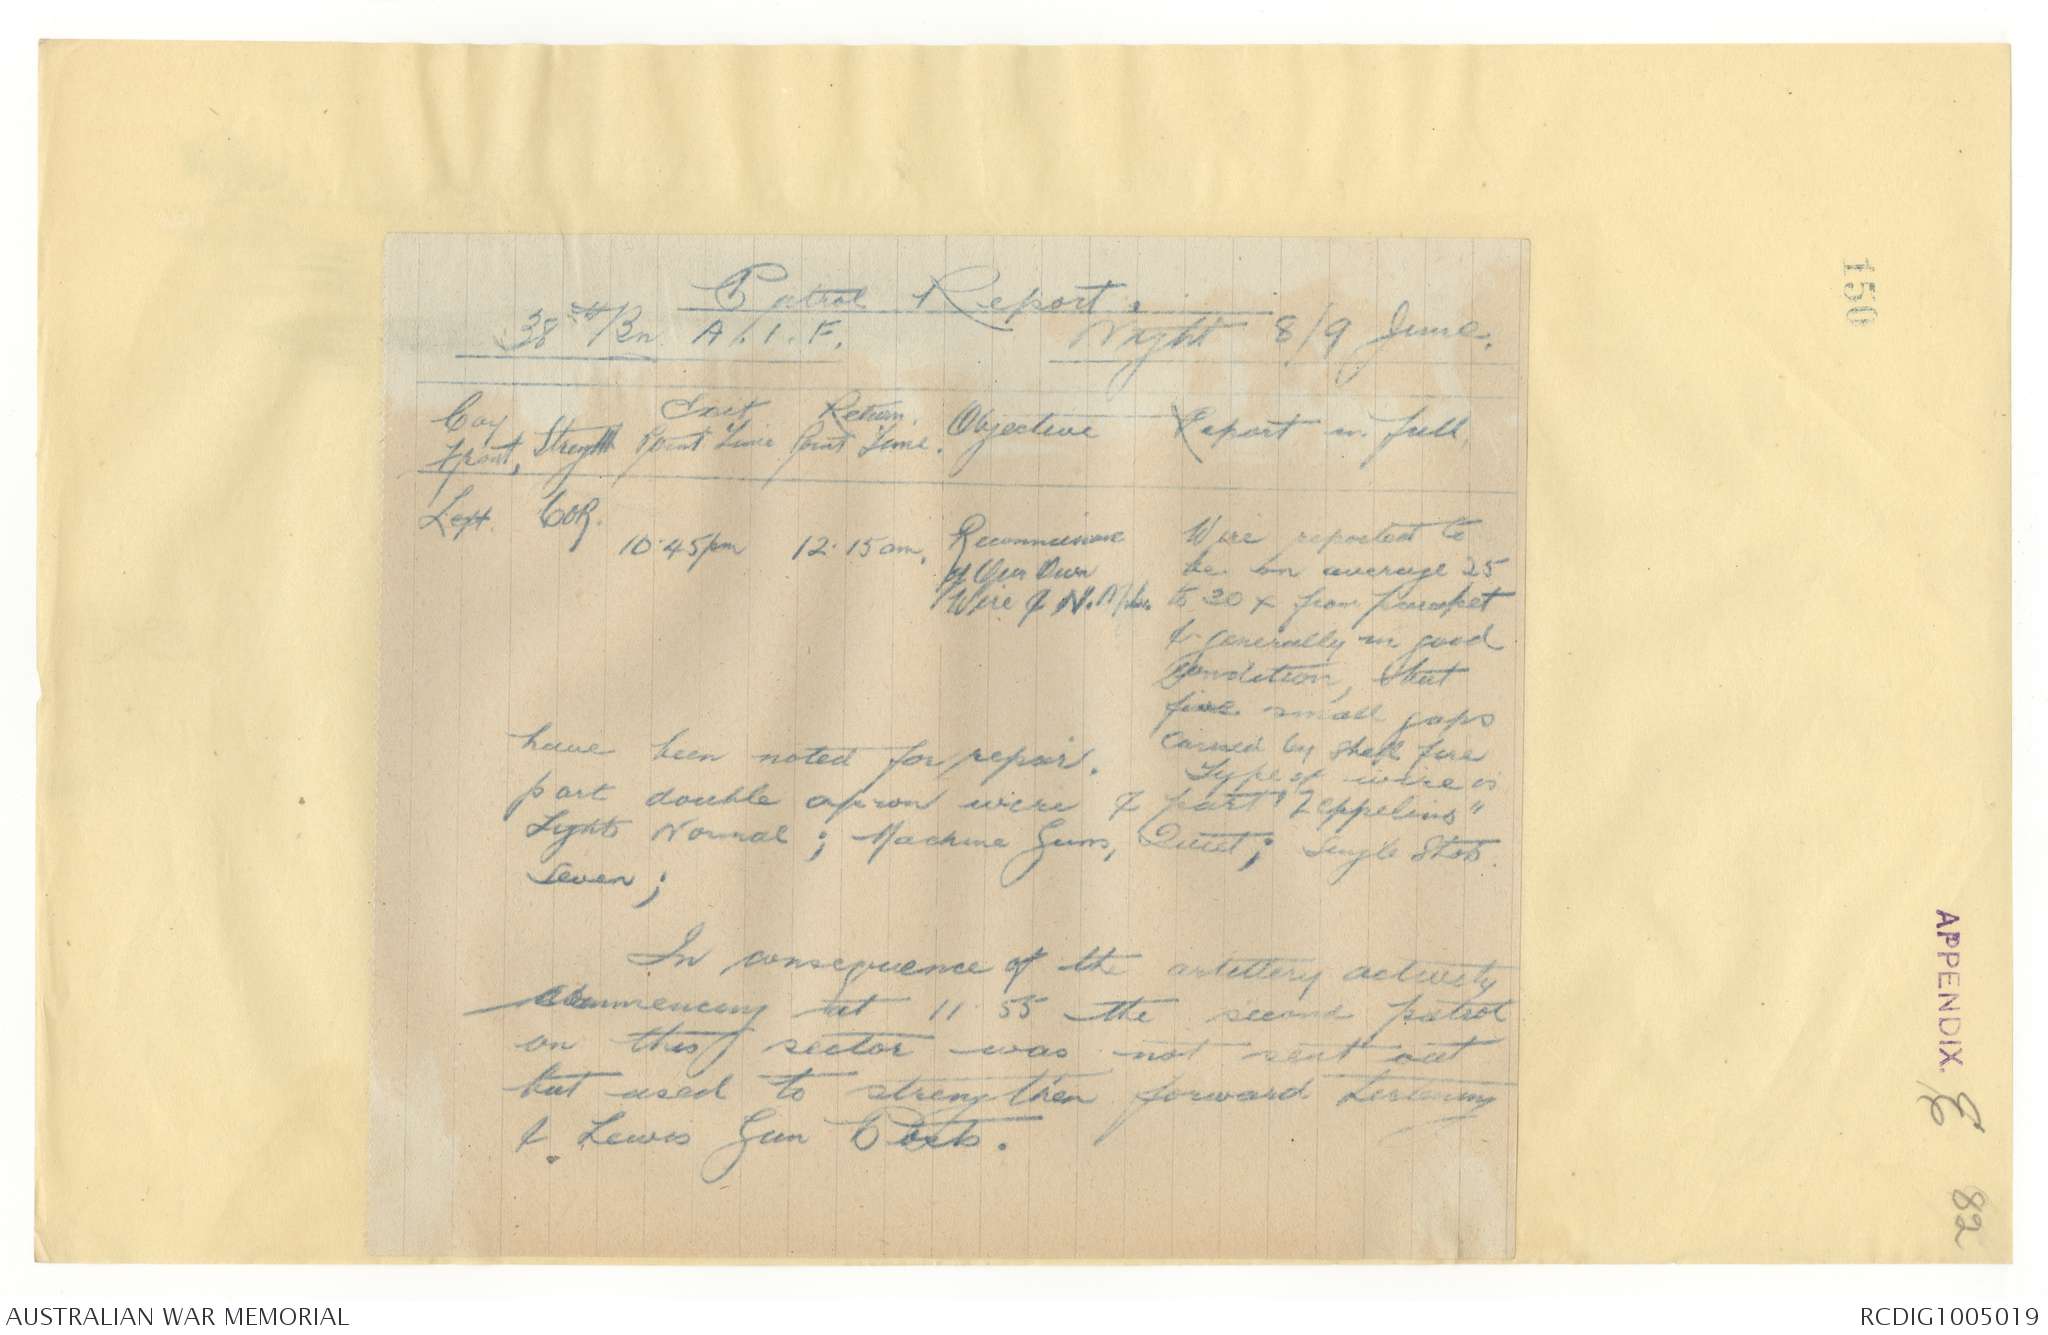 Patrol Report.
38th/Bn A.I.F. Night 8/9 June.
Coy Exit Return. Objective Report in full.
Front. Strength Point Time Point Time.
Left. 6 OR.
10.45pm 12.15am. Reconnaissance Wire reported to
of Our Own be on average 25
Wire & N.M. to 30 x from parapet
& generally in good
condition, that
five small gaps
caused by shell fire
have been noted for repair. Type of wire is
part double apron wire & part "Zeppelins"
Lights Normal; Machine Guns, Quiet; Single Shots.
Seven;
In consequence of the artillery activity
commencing at 11.55 the second patrol
on this sector was not sent out
but used to strengthen forward Listening
& Lewis Gun Posts.
150
APPENDIX. E
82
AUSTRALIAN WAR MEMORIAL RCDIG1005019